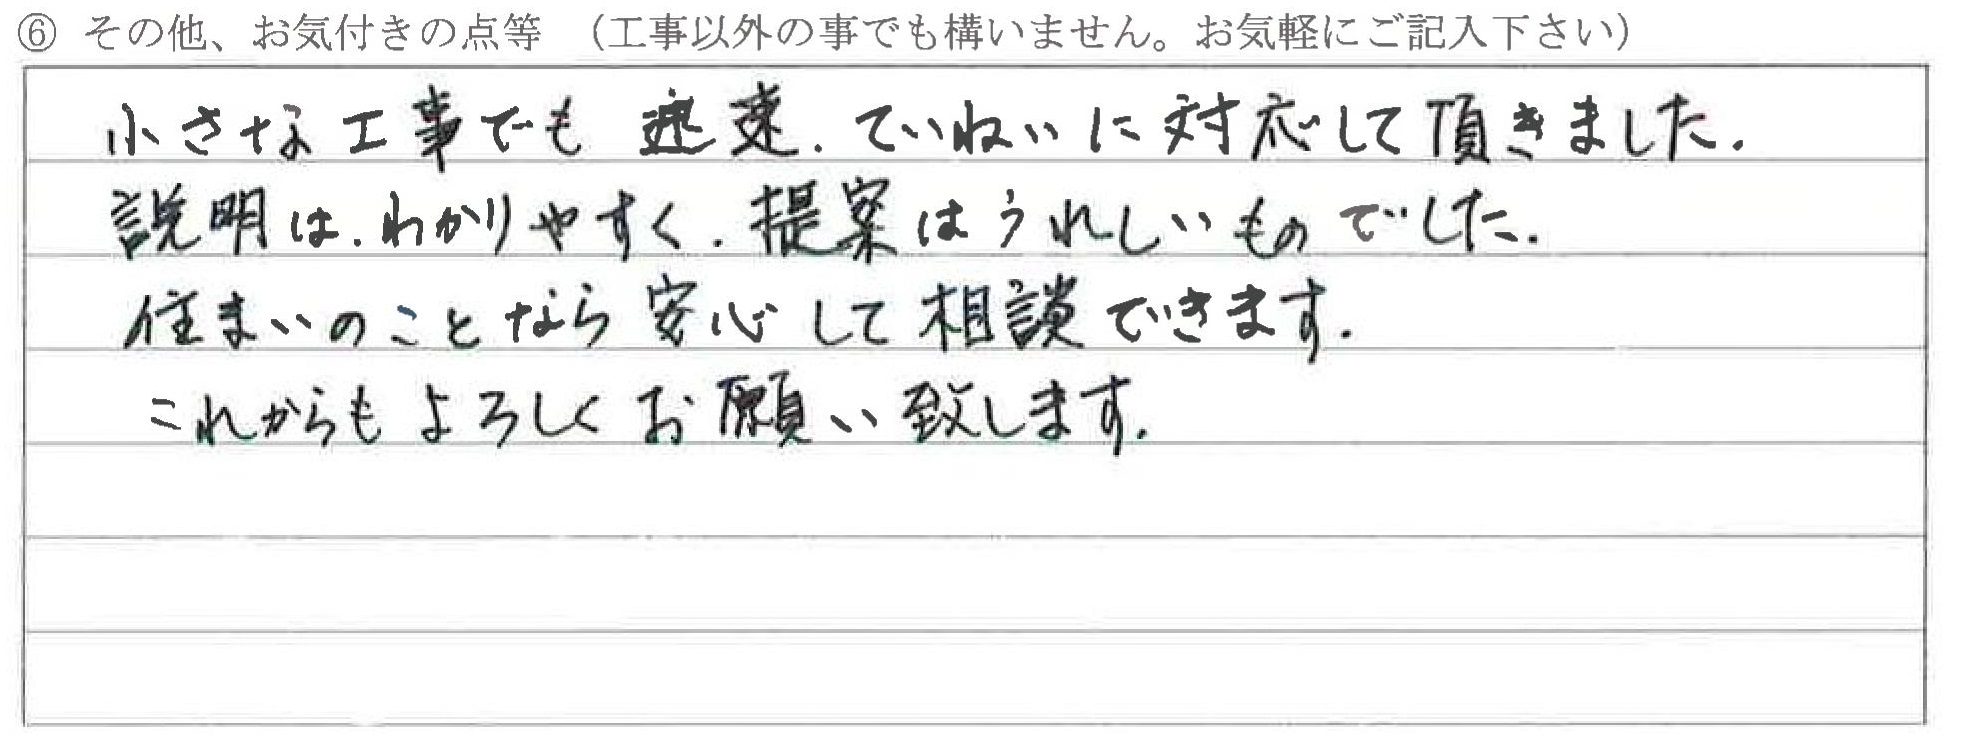 ⑥ その他、お気付きの点等 （工事以外の事でも構いません。お気軽にご記入下さい）
小さな工事でも 迅速. ていねいに対応して頂きました.
説明は. わかりやすく. 提案はうれしいものでした.
住まいのことなら安心して相談できます.
これからもよろしくお願い致します.